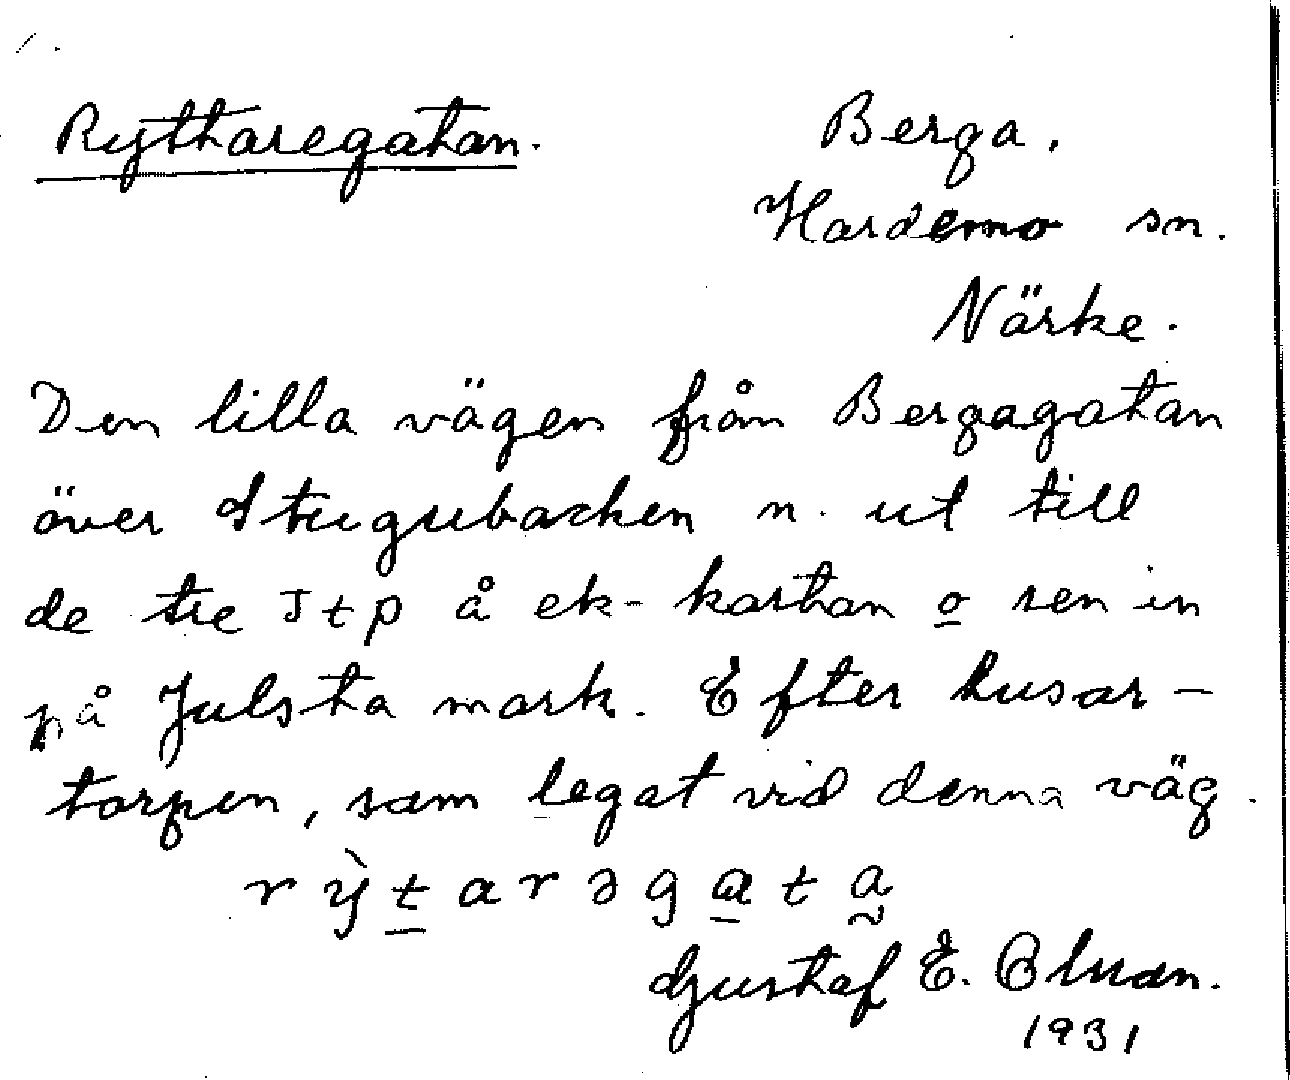 Ryttaregatan. Berga.
Hardemo sn.
Närke.
Den lilla vägen från Bergagatan
över Stugubacken n. ut till
de tre Jtp å ek-kartan o sen in
på Julsta mark. Efter husar-
torpen, som legat vid denna väg.
rỳt̲arəga̲ta̰
Gustaf E. Olman.
1931